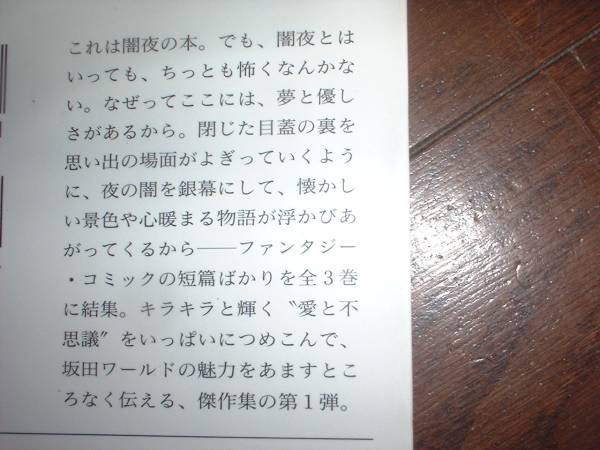 これは闇夜の本。でも、闇夜とは
いっても、ちっとも怖くなんかな
い。なぜってここには、夢と優し
さがあるから。閉じた目蓋の裏を
思い出の場面がよぎっていくよう
に、夜の闇を銀幕にして、懐かし
い景色や心暖まる物語が浮かびあ
がってくるから──ファンタジー
・コミックの短篇ばかりを全3巻
に結集。キラキラと輝く〝愛と不
思議〟をいっぱいにつめこんで、
坂田ワールドの魅力をあますとこ
ろなく伝える、傑作集の第1弾。